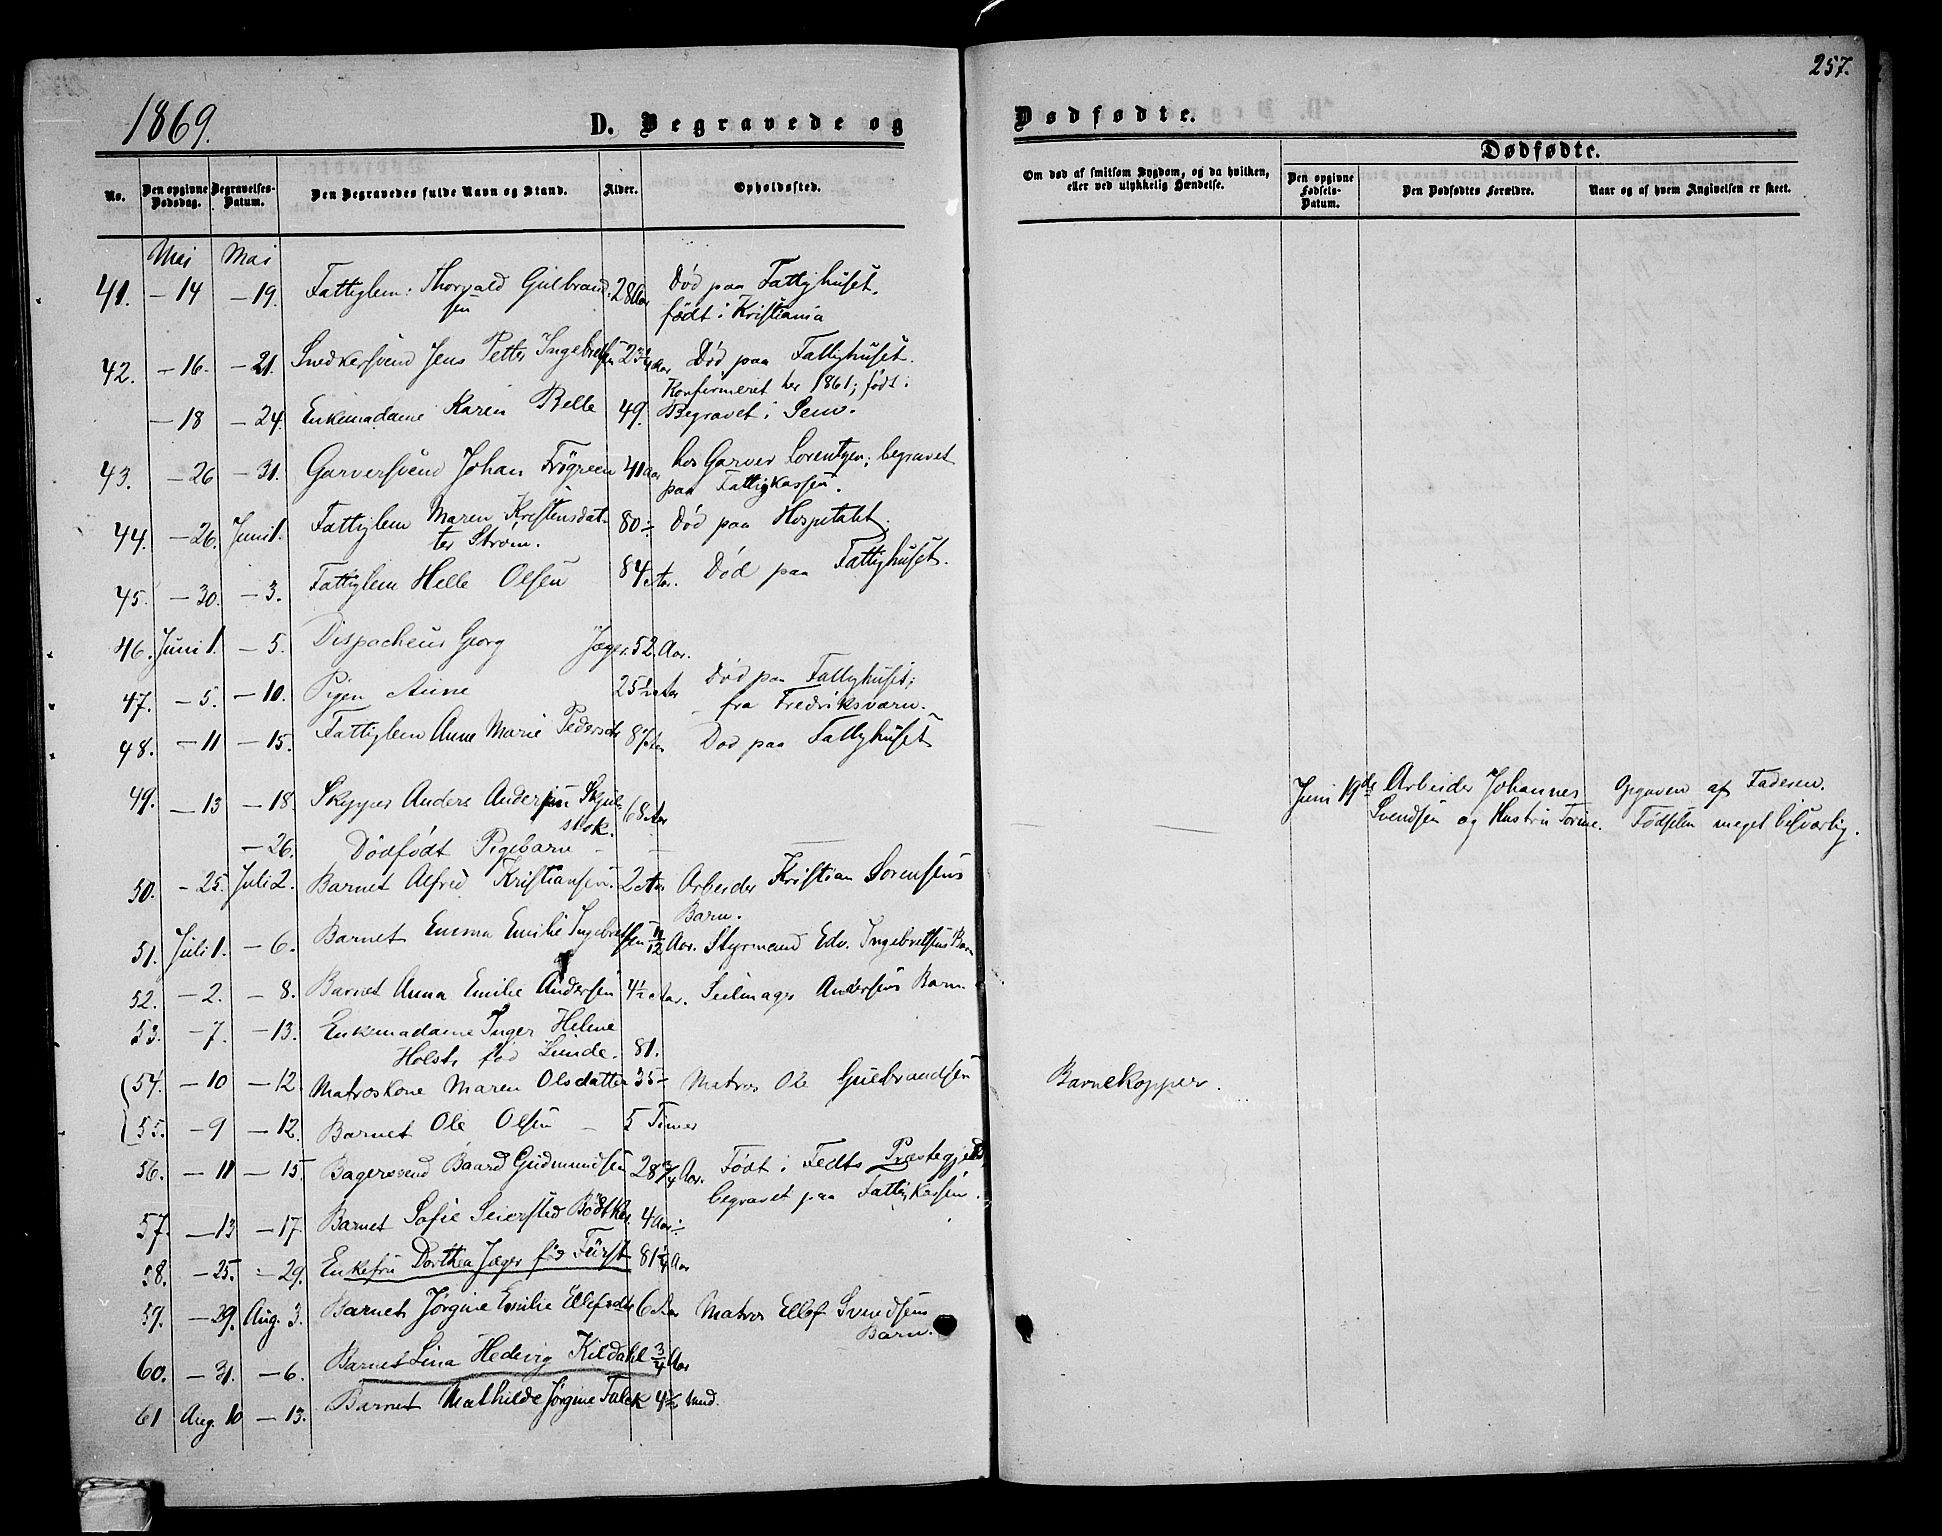 257.
1869.
D. Begravede og
Dødfødte.
No.
Den opgivne Dødsdag.
Begravelses-Datum.
Den Begravedes fulde Navn og Stand.
Alder.
Opholdssted.
Om død af smitsom Sygdom, og da hvilken, eller ved ulykkelig Hændelse.
Dødfødte.
Den opgivne Fødsels-Datum.
Den Dødfødtes Forældre.
Naar og af hvem Angivelsen er skeet.
Mai Mai
41. — 14 — 19. Fattiglem: Thorvald Gulbrandsen 28 Aar Død paa Fattighuset.
født i Kristiania
42. — 16. — 21. Snedkersvend Jens Petter Ingebretsen Aar Død paa Fattighuset.
Konfirmeret her 1861; født i
— 18 — 24. Enkemadame Karen Belle 49. Begravet i Sem.
43. — 26 — 31. Garversvend Johan Frögreen 41 Aar hos Garver Lorentzen; begravet
paa Fattigkassen.
44. — 26. Juni 1. Fattiglem Maren Kristensdat-
ter Ström. 80 Död paa Hospitalet.
45. — 30. — 3. Fattiglem Helle Olsen 84 Aar. Död paa Fattighuset.
46. Juni 1. — 5. Dispacheur Georg Jæger. 52. Aar.
47. — 5. — 10. Pigen Anne 25½ Aar Död paa Fattighuset;
fra Fredriksværn.
48. — 11 — 15. Fattiglem Anne Marie Pedersdtr Død paa Fattyhuset
49. — 13 — 18. Skipper Anders Andersen
68 Aar
— 26. Dödfödt Pigebarn — — Juni 19de Arbeider Johannes Opgaven af Faderen.
Svendsen og Hustru Torine. Födselen meget besværlig.
50. — 25. Juli 2. Barnet Alfred Kristiansen. 2 Aar Arbeider Kristian Sorensens
Barn.
51. Juli 1. — 6. Barnet Emma Emilie Ingebretsen 11/12 Aar. Styrmand Edv. Ingebretsens Barn
52. — 2. — 8. Barnet Anna Emilie Andersen 4½ Aar. Seilmager Andersens Barn
53. — 7. — 13. Enkemadame Inger Helene
Holst, fød Linde. 81.
54. — 10 — 12 Matroskone Maren Olsdatter 35 — Matros Ole Gulbrandsen Barnekopper.
55. — 9 — 12. Barnet Ole Olsen — 5 Timer
56. — 11 — 15 Bagersvend Baard Gudmundsen 28 ¾ Aar. Født i Fedts Præstegjeld,
begravet paa Fattigkassen.
57. — 13 — 17. Barnet Sofie Seiersted Bödtker 4 Aar
58. — 25. — 29. Enkefru Dorthea Jæger fød Fürst 81 ¼ Aar
59. — 29. Aug. 3. Barnet Jørgine Emilie Ellefsdtr 6 Aar Matros Ellef Svendsens
Barn.
60. — 31. — 6. Barnet Lina Hedevig Kildahl ¾ Aar
61 Aug. 10 — 13. Barnet Mathilde Jørgine Falck 4½ Mnd.